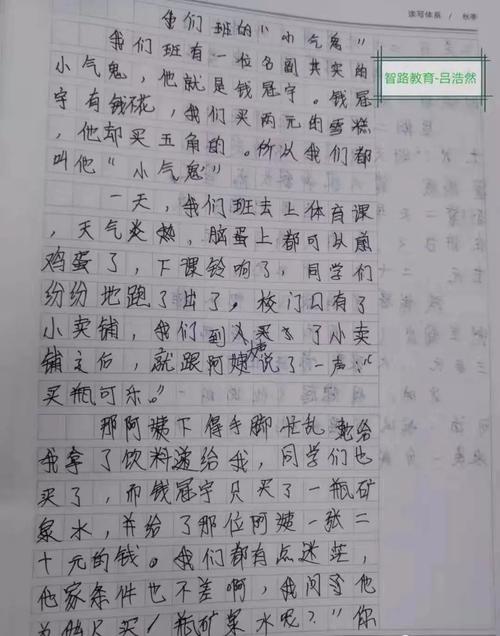 读写体系 / 秋季
智路教育-吕浩然
我们班的“小气鬼”
我们班有一位名副其实的
小气鬼，他就是钱冠宇。钱冠
宇有钱花，我们买两元的雪糕
，他却买五角的。所以我们都
叫他“小气鬼”
一天，我们班去上体育课
，天气炎热，脑蛋上都可以煎
鸡蛋了，下课铃响了，同学们
纷纷地跑了出了，校门口有了
小卖铺，我们到了小卖
铺之后，就跟阿姨说了一声：“
买瓶可乐。”
那阿姨下得手脚忙乱 就给
我拿了饮料递给我，同学们也
买了，而钱冠宇只买了一瓶矿
泉水，并给了那位阿姨一张二
十元的钱。我们都有点迷茫，
他家条件也不差啊，我问了他
只买1瓶矿泉水呢？“你